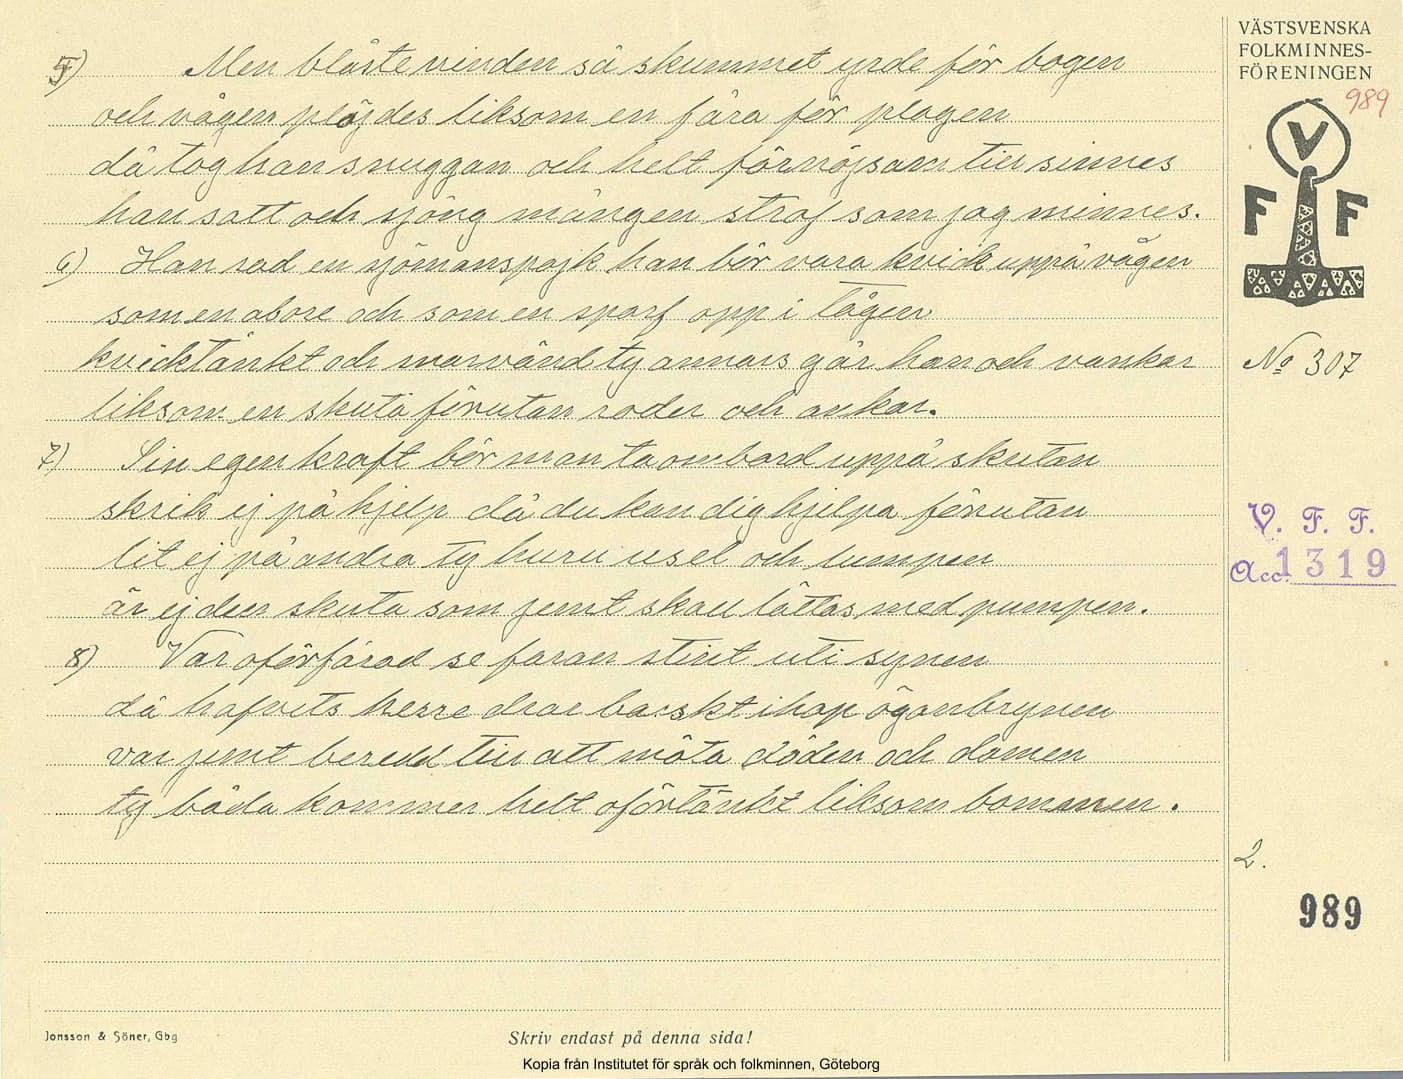 5) Men blåste vinden så skummet yrde för bogen
och vågen plöjdes liksom en fåra för plogen
då tog han snuggan och helt förnöjsam till sinnes
han satt och sjöng mången strof som jag minnes.
6) Han sad en sjömanspojk han bör vara kvick uppå vågen
som en abore och som en sparf opp i tågen
kvicktänkt och snarvänd ty annars går han och vankar
liksom en skuta förutan roder och ankar.
7) Sin egen kraft bör man ta ombord uppå skutan
skrik ej på hjelp då du kan dig hjelpa förrutan
lit ej på andra ty huru usel och lumpen
är ej den skuta som jemt skall lättas med pumpen.
8) Var oförfärad se faran stint uti synen
då hafvets herre drar barskt ihop ögonbrynen
var jemt beredd till att möta döden och domen
ty båda kommer helt oförtänkt liksom bommen.
VÄSTSVENSKA
FOLKMINNES-
FÖRENINGEN
989
V
F F
No 307
V. F. F.
Acc. 1319
2.
989
Jonsson & Söner, Gbg
Skriv endast på denna sida!
Kopia från Institutet för språk och folkminnen, Göteborg